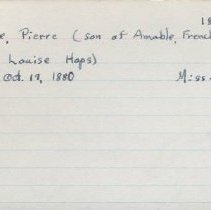 18
e, Pierre (son of Amable, French
Louise Hops)
Oct. 17, 1880 Miss